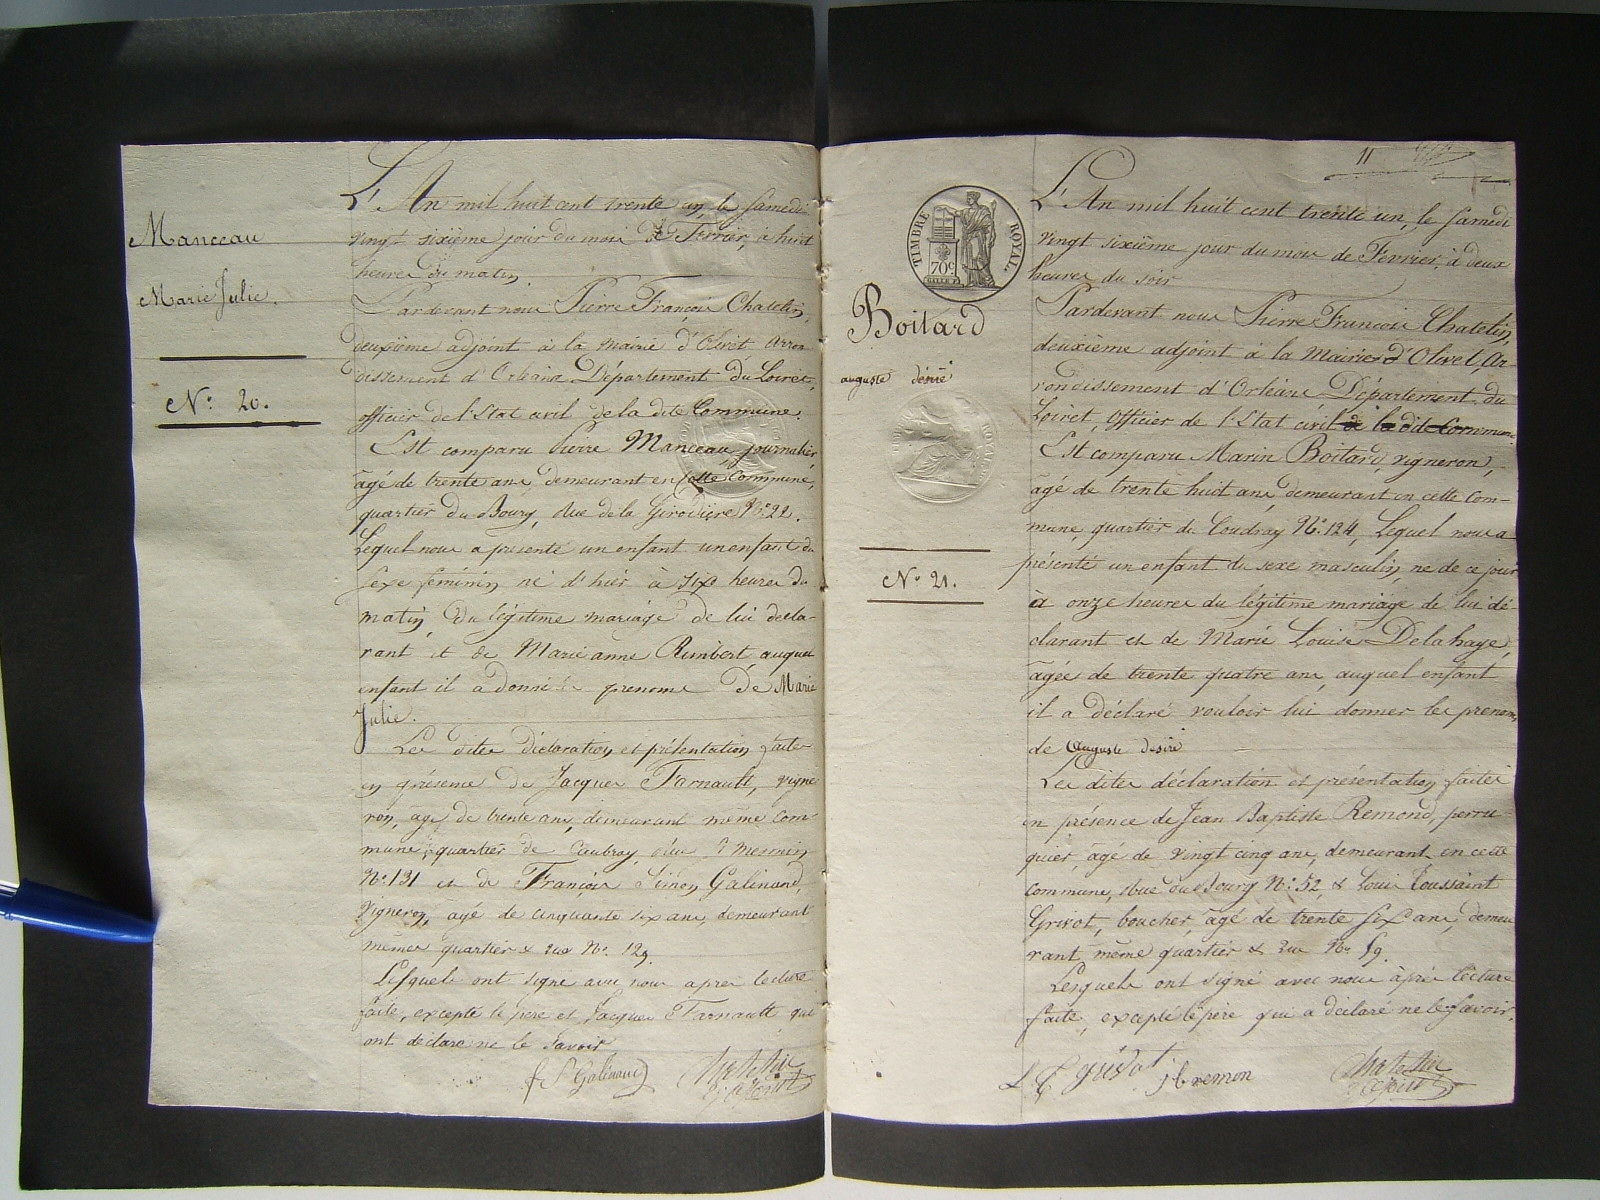 Manceau
Marie Julie.
N.° 20.
L'An mil huit cent trente un, le Samedi
vingt sixième jour du mois de Fevrier, à huit
heures du matin
Pardevant nous Pierre François Chatelin,
deuxième adjoint à la mairie d'Olivet, arron
dissement d'Orléans Département du Loiret,
officier de l'Etat civil de la dite Commune.
Est comparu Pierre Manceau, journalier,
âgé de trente ans, demeurant en cette Commune,
quartier du Bourg, Rue de la Girodière N.° 22.
Lequel nous a présenté un enfant un enfant du
sexe féminin né d'hier à six heures du
matin, du légitime mariage de lui décla-
rant et de Marie anne Rimbert auquel
enfant il a donné prenoms de Marie
Julie.
Les dites déclaration et présentation faites
en présence de Jacques Farnault, vigne
ron, âgé de trente ans, demeurant même com-
mune, quartier de Caubray,
N.° 131 et de François Simon Galinand,
Vigneron, agé de cinquante six ans, demeurant
mêmes quartier & rue N.° 129.
Lesquels ont signé avec nous après lecture
faite, excepté le père et Jacques Farnault qui
ont déclaré ne le savoir
f S Galinand
Chatelin
adjoint
11
TIMBRE ROYAL
70c
Boitard
auguste désiré
N.° 21.
L'An mil huit cent trente un, le Samedi
vingt sixième jour du mois de Fevrier, à deux
heures du soir
Pardevant nous Pierre François Chatelin,
deuxième adjoint à la Mairie d'Olivet, Ar-
rondissement d'Orléans Département du
Loiret, Officier de l'Etat civil de la dite Commune
Est comparu Marin Boitard, vigneron,
âgé de trente huit ans, demeurant en cette Com-
mune, quartier du Coudray N.° 124, Lequel nous a
présenté un enfant du sexe masculin, né de ce jour
à onze heures du légitime mariage de lui dé-
clarant et de Marie Louise Delahaye,
âgée de trente quatre ans, auquel enfant
il a déclaré vouloir lui donner les prenoms
de auguste desiré
Les dites déclaration et présentation faites
en présence de Jean Baptiste Remond, perru
quier, âgé de vingt cinq ans, demeurant en cette
commune, Rue du Bourg N.° 52, & Louis Toussaint
Grivot, boucher, âgé de trente six ans, demeu
rant même quartier & rue N.° 59.
Lesquels ont signé avec nous après lecture
faite, excepté le père qui a déclaré ne le savoir.
L T grivot
j b remon
Chatelin
adjoint